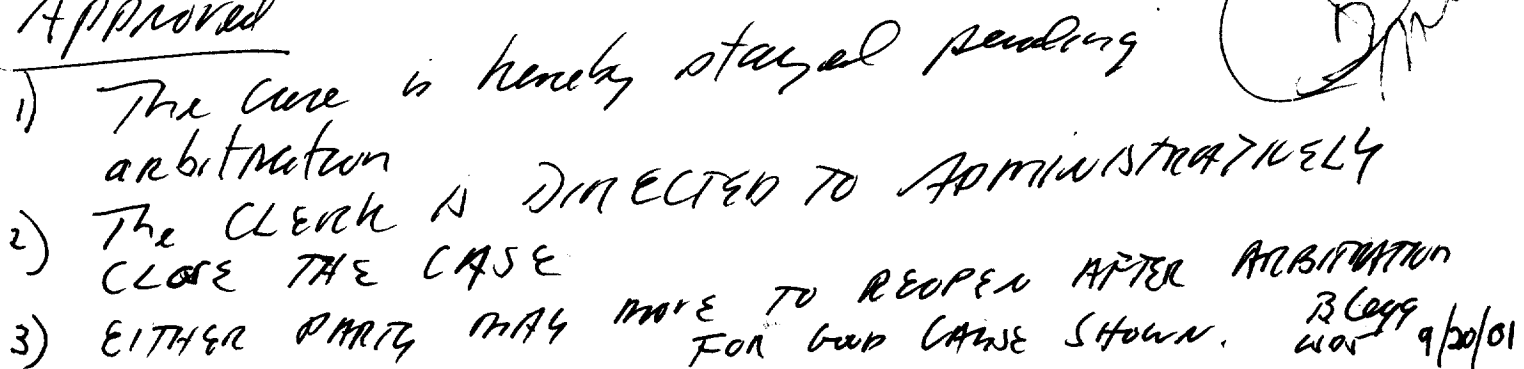 Approved
1) The case is hereby stayed pending
arbitration
2) The CLERK is DIRECTED TO ADMINISTRATIVELY
CLOSE THE CASE
3) EITHER PARTY MAY MOVE TO REOPEN AFTER ARBITRATION
FOR GOOD CAUSE SHOWN.
9/20/01